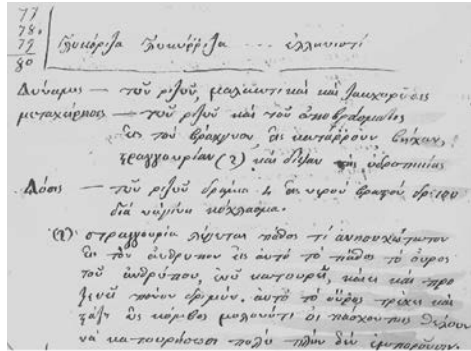 77
78.
79
80
Γλυκόριζα Γλυκύρριζα ... ἑλληνιστί
Δύναμις — τοῦ ριζοῦ, μαλακτικὴ καὶ
μεταχείρησις — τοῦ ριζοῦ καὶ τοῦ ἀποβράσματος
εἰς τὸν βράγχνον εἰς κατάρρουν βῆχαν,
στραγγουρίαν (2) καὶ δίψαν τῆς ὑδροπικίας
Δόσις — τοῦ ριζοῦ δράμια 4 εἰς νεροῦ
διὰ νὰ κόχλασμα.
(2) στραγγουρία λέγεται πάθος τὶ ἀνησυχώτατον
εἰς τὸν ἄνθρωπον εἰς αὐτὸ τὸ πάθος τὸ οὖρος
τοῦ ἀνθρώπου, ἐνῶ κατουρεῖ, καίει καὶ προ
ξενεῖ πόνον δριμύν. αὐτὸ τὸ οὖρος τρέχει καὶ
κόμβος μολονότι οἱ πάσχοντες θέλουν
νὰ κατουρήσωσι πολὺ πλὴν δὲν ἐμποροῦσιν.